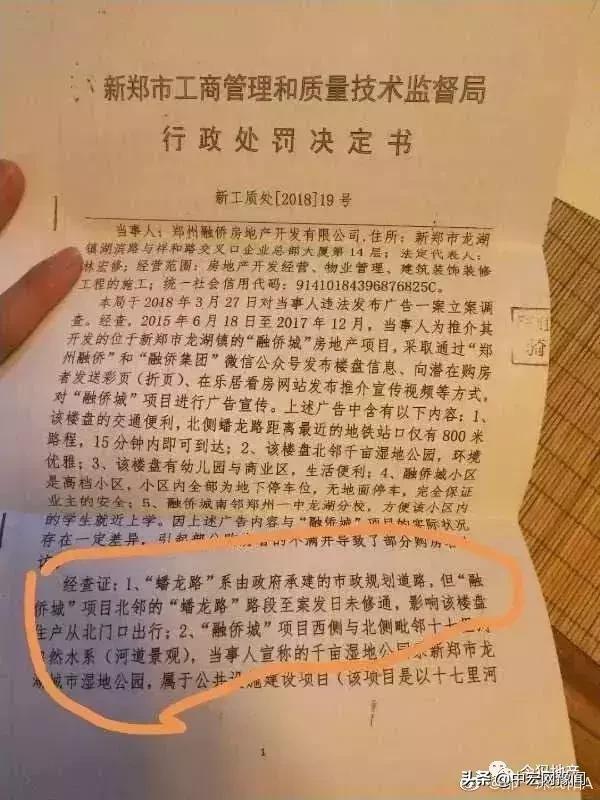 新郑市工商管理和质量技术监督局
行政处罚决定书
新工质处[2018]19号
当事人：郑州融侨房地产开发有限公司,住所：新郑市龙湖
镇湖滨路与祥和路交叉口企业总部大厦第14层；法定代表人：
林宏修；经营范围：房地产开发经营、物业管理、建筑装饰装修
工程的施工；统一社会信用代码：91410184396876825C。
本局于2018年3月27日对当事人违法发布广告一案立案调
查。经查，2015年6月18日至2017年12月，当事人为推介其
开发的位于新郑市龙湖镇的“融侨城”房地产项目，采取通过“郑
州融侨”和“融侨集团”微信公众号发布楼盘信息、向潜在购房
者发送彩页（折页）、在乐居看房网站发布推介宣传视频等方式，
对“融侨城”项目进行广告宣传。上述广告中含有以下内容：1、
该楼盘的交通便利，北侧蟠龙路距离最近的地铁站口仅有800米
路程，15分钟内即可到达；2、该楼盘北邻千亩湿地公园，环境
优雅；3、该楼盘有幼儿园与商业区，生活便利；4、融侨城小区
是高档小区，小区内全部为地下停车位，无地面停车，完全保证
业主的安全；5、融侨城南邻郑州一中龙湖分校，方便该小区内
的学生就近上学。因上述广告内容与“融侨城”项目的实际状况
存在一定差异，引起部分购房者的不满并导致了部分购房
经查证：1、“蟠龙路”系由政府承建的市政规划道路，但“融
侨城”项目北邻的“蟠龙路”路段至案发日未修通，影响该楼盘
生产从北门口出行；2、“融侨城”项目西侧与北侧毗邻十七里河
自然水系（河道景观），当事人宣称的千亩湿地公园系新郑市龙
湖城市湿地公园，属于公共设施建设项目（该项目是以十七里河
1
骑
头条@中宏网教闻